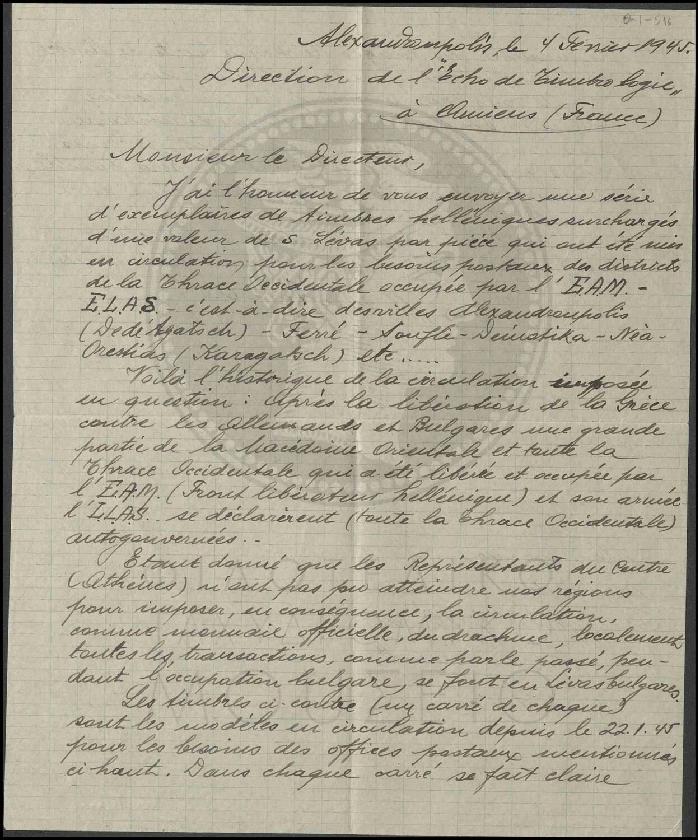 Alexandroupolis, le 4 Fevrier 1945.
Direction de l'"Echo de Timbrologie"
à Amiens (France)
Monsieur le Directeur,
J'ai l'honneur de vous envoyer une série
d'exemplaires de timbres helléniques surchargés
d'une valeur de 5 Lévas par pièce qui ont été mis
en circulation pour les besoins postaux des districts
de la Thrace Occidentale occupée par l'EAM. -
ELAS. - c'est-à-dire des villes Alexandroupolis
(Dedéagatsch) - Ferré - Souflé - Deimotika - Néa-
Orestias (Karagatsch) etc.....
Voilà l'historique de la circulation imposée
en question: Après la libération de la Grèce
contre les Allemands et Bulgares une grande
partie de la Macédoine Orientale et toute la
Thrace Occidentale qui a été libérée et occupée par
l'EAM. (Front libérateur hellénique) et son armée
l'ELAS. se déclarèrent (toute la Thrace Occidentale)
autogouvernées. -
Etant donné que les Représentants du Centre
(Athènes) n'ont pas pu atteindre nos régions
pour imposer, en conséquence, la circulation,
comme monnaie officielle, du drachme, localement
toutes les transactions, comme par le passé, pen-
dant l'occupation bulgare, se font en Lévas bulgares.
Les timbres ci-contre (un carré de chaque)
sont les modèles en circulation depuis le 22.1.45
pour les besoins des offices postaux mentionnés
ci-haut. Dans chaque carré se fait claire